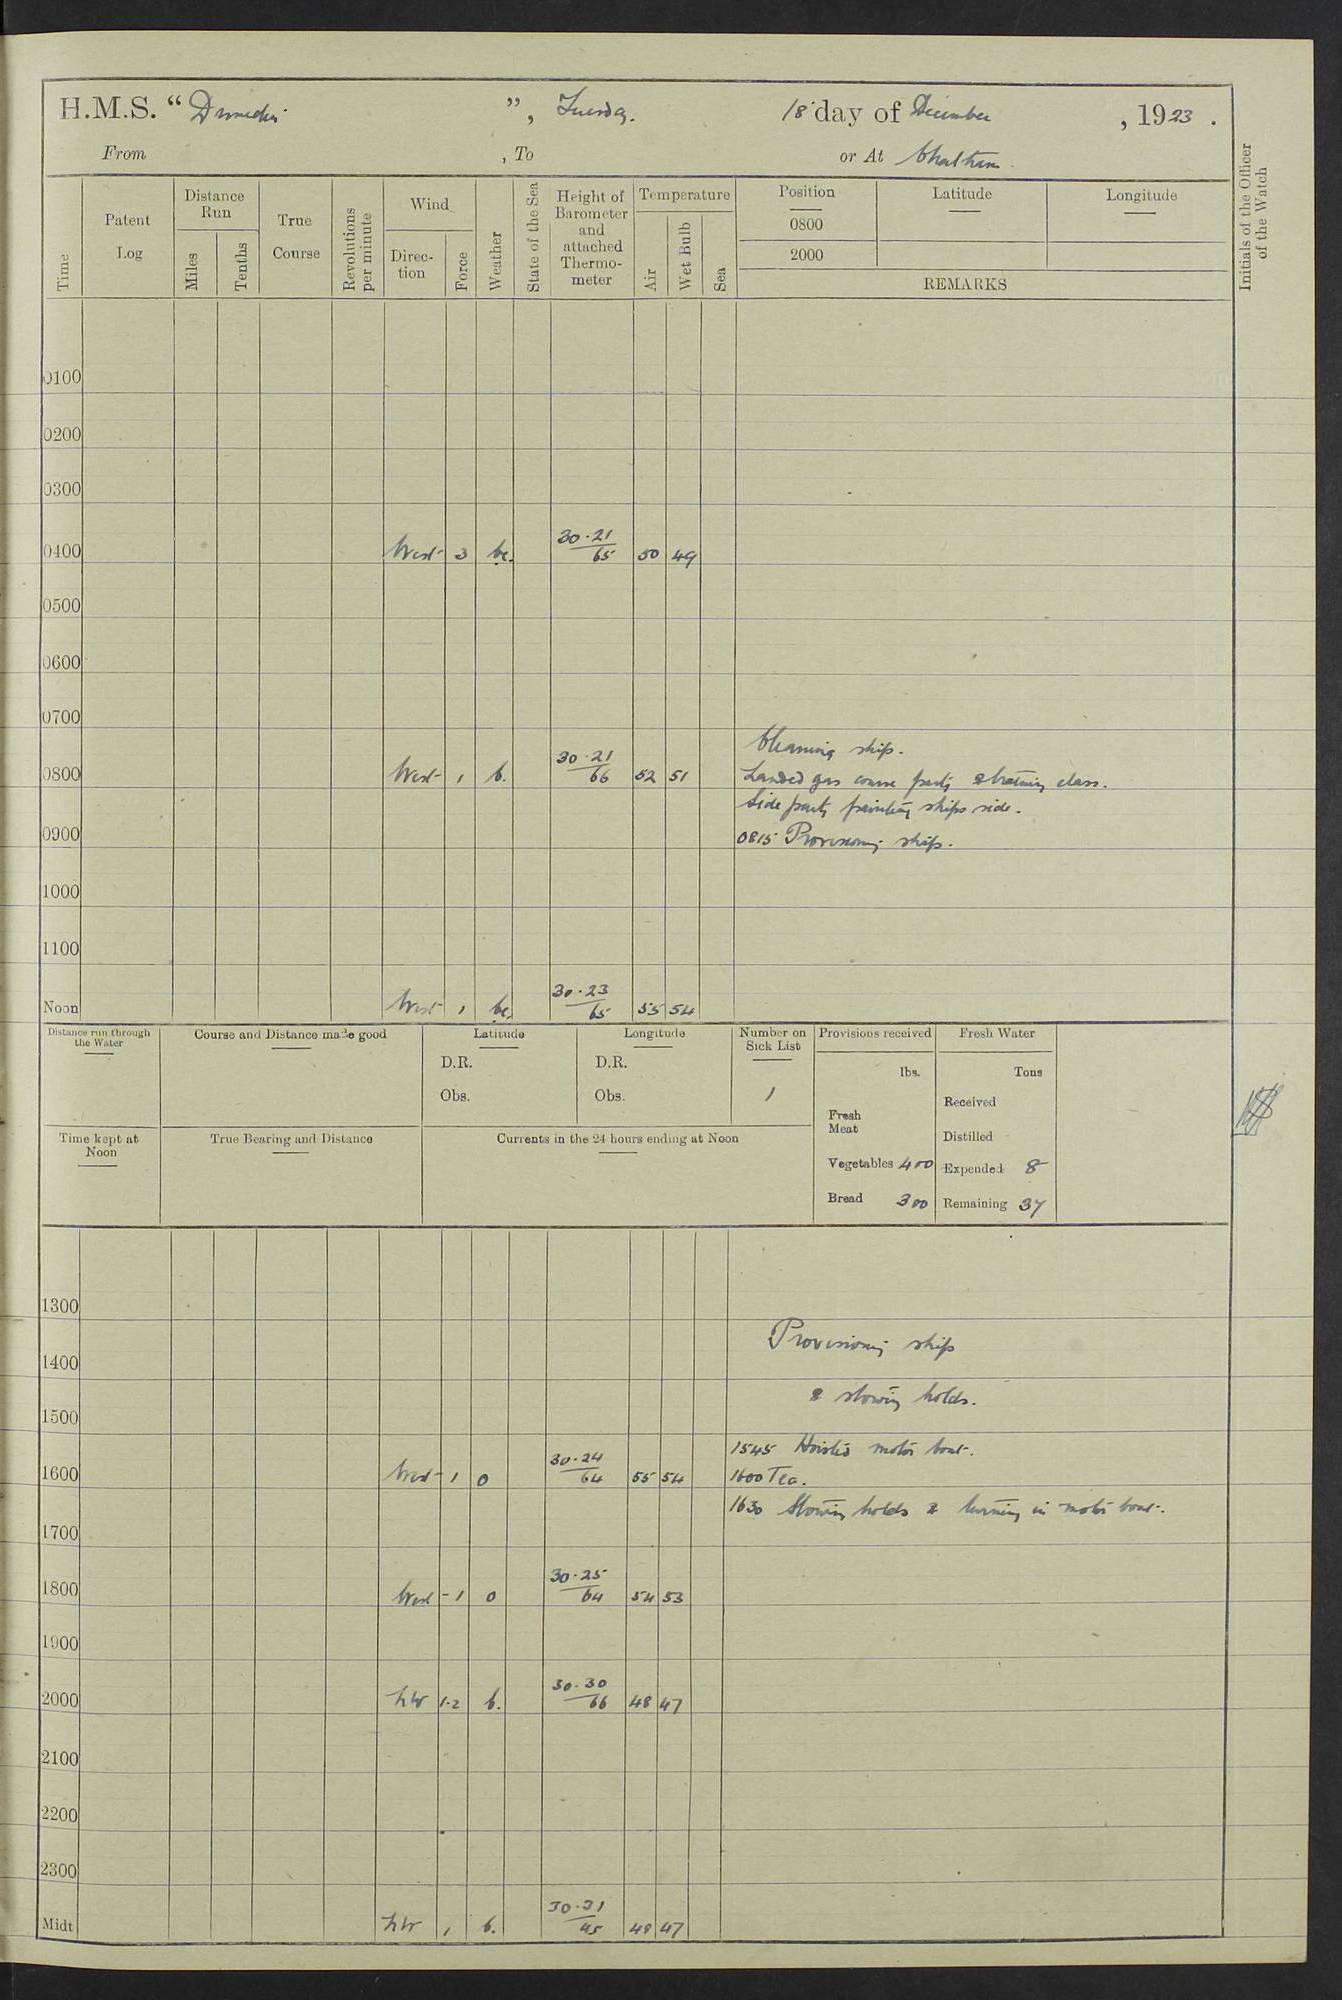 H.M.S. " Dunedin ", Tuesday. 18 day of December, 1923.
From , To or At Chatham.
Time
Patent Log
Distance Run
Miles
Tenths
True Course
Revolutions per minute
Wind
Direction
Force
Weather
State of the Sea
Height of Barometer and attached Thermometer
Temperature
Air
Wet Bulb
Sea
Position Latitude Longitude
0800
2000
REMARKS
Initials of the Officer of the Watch
0100
0200
0300
0400 West 3 bc. 30.21 65 50 49
0500
0600
0700
Cleaning ship.
0800 West 1 b. 30.21 66 52 51 Landed gas course party & training class.
Side party painting ships side.
0900 0815 Provisioning ship.
1000
1100
Noon West 1 bc. 30.23 65 55 54
Distance run through the Water
Course and Distance made good
Latitude
D.R.
Obs.
Longitude
D.R.
Obs.
Number on Sick List
1
Provisions received
lbs.
Fresh Meat
Vegetables 400
Bread 300
Fresh Water
Tons
Received
Distilled
Expended 8
Remaining 37
Time kept at Noon
True Bearing and Distance
Currents in the 24 hours ending at Noon
1300
Provisioning ship
1400
& stowing holds.
1500
1545 Hoisted motor boat.
1600 West 1 o 30.24 64 55 54 1600 Tea.
1630 Stowing holds & turning in motor boat.
1700
1800 West 1 o 30.25 64 54 53
1900
2000 NW 1-2 b. 30.30 66 48 47
2100
2200
2300
Midt NW 1 b. 30.31 65 48 47